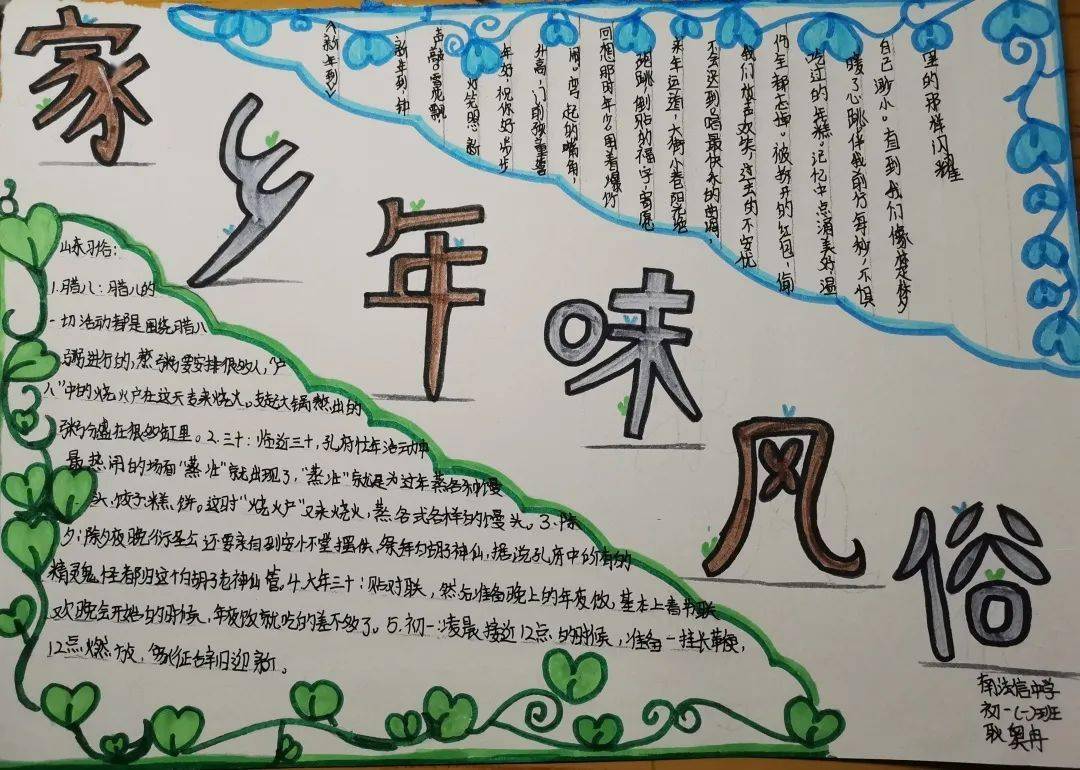 家乡年味风俗
《新年到》
新年到钟
声融。雪花飘
灯笼照新
年好,祝你好步步
升高,门前孩童喜
闹。弯起的嘴角,
回想那时年少,围着爆竹
跑跳,倒贴的福字,寄愿
来年运道,大街小巷阳花
不会迟到唱最快乐的曲调,
我们放声欢笑,过去的不安忧
伤全都忘掉。被拆开的红包,偷
吃过的年糕。记忆中点滴美好温
暖了心跳伴我前行每秒,不惧
自己渺小。直到我们像梦
里的那样闪耀
山东习俗:
1.腊八:腊八的
一切活动都是围绕腊八
粥进行的,熬粥要安排很多人,“户
人”中的烧火户在这天专来烧火。支起大锅熬出的
粥分盛在很多缸里。2.三十:临近三十,孔府忙年活动中
最热闹的场面“蒸作”就出现了,“蒸作”就是为过年蒸各种馒
头、饺子、糕、饼。这时“烧火户”又来烧火,蒸各式各样的馒头。3.除
夕:除夕夜晚衍圣公还要亲自到安小堂摆供,祭每勾胡子神仙,据说孔府中的所有的
精灵鬼怪都归这个白胡子老神仙管。4.大年三十:贴对联,然后准备晚上的年夜饭,基本上春节联
欢晚会开始的时候,年夜饭就吃的差不多了。5.初一:凌晨接近12点的时候,准备一挂长鞭炮,
12点燃放,象征辞旧迎新。
南法信中学
初一(一)班
耿奥冉